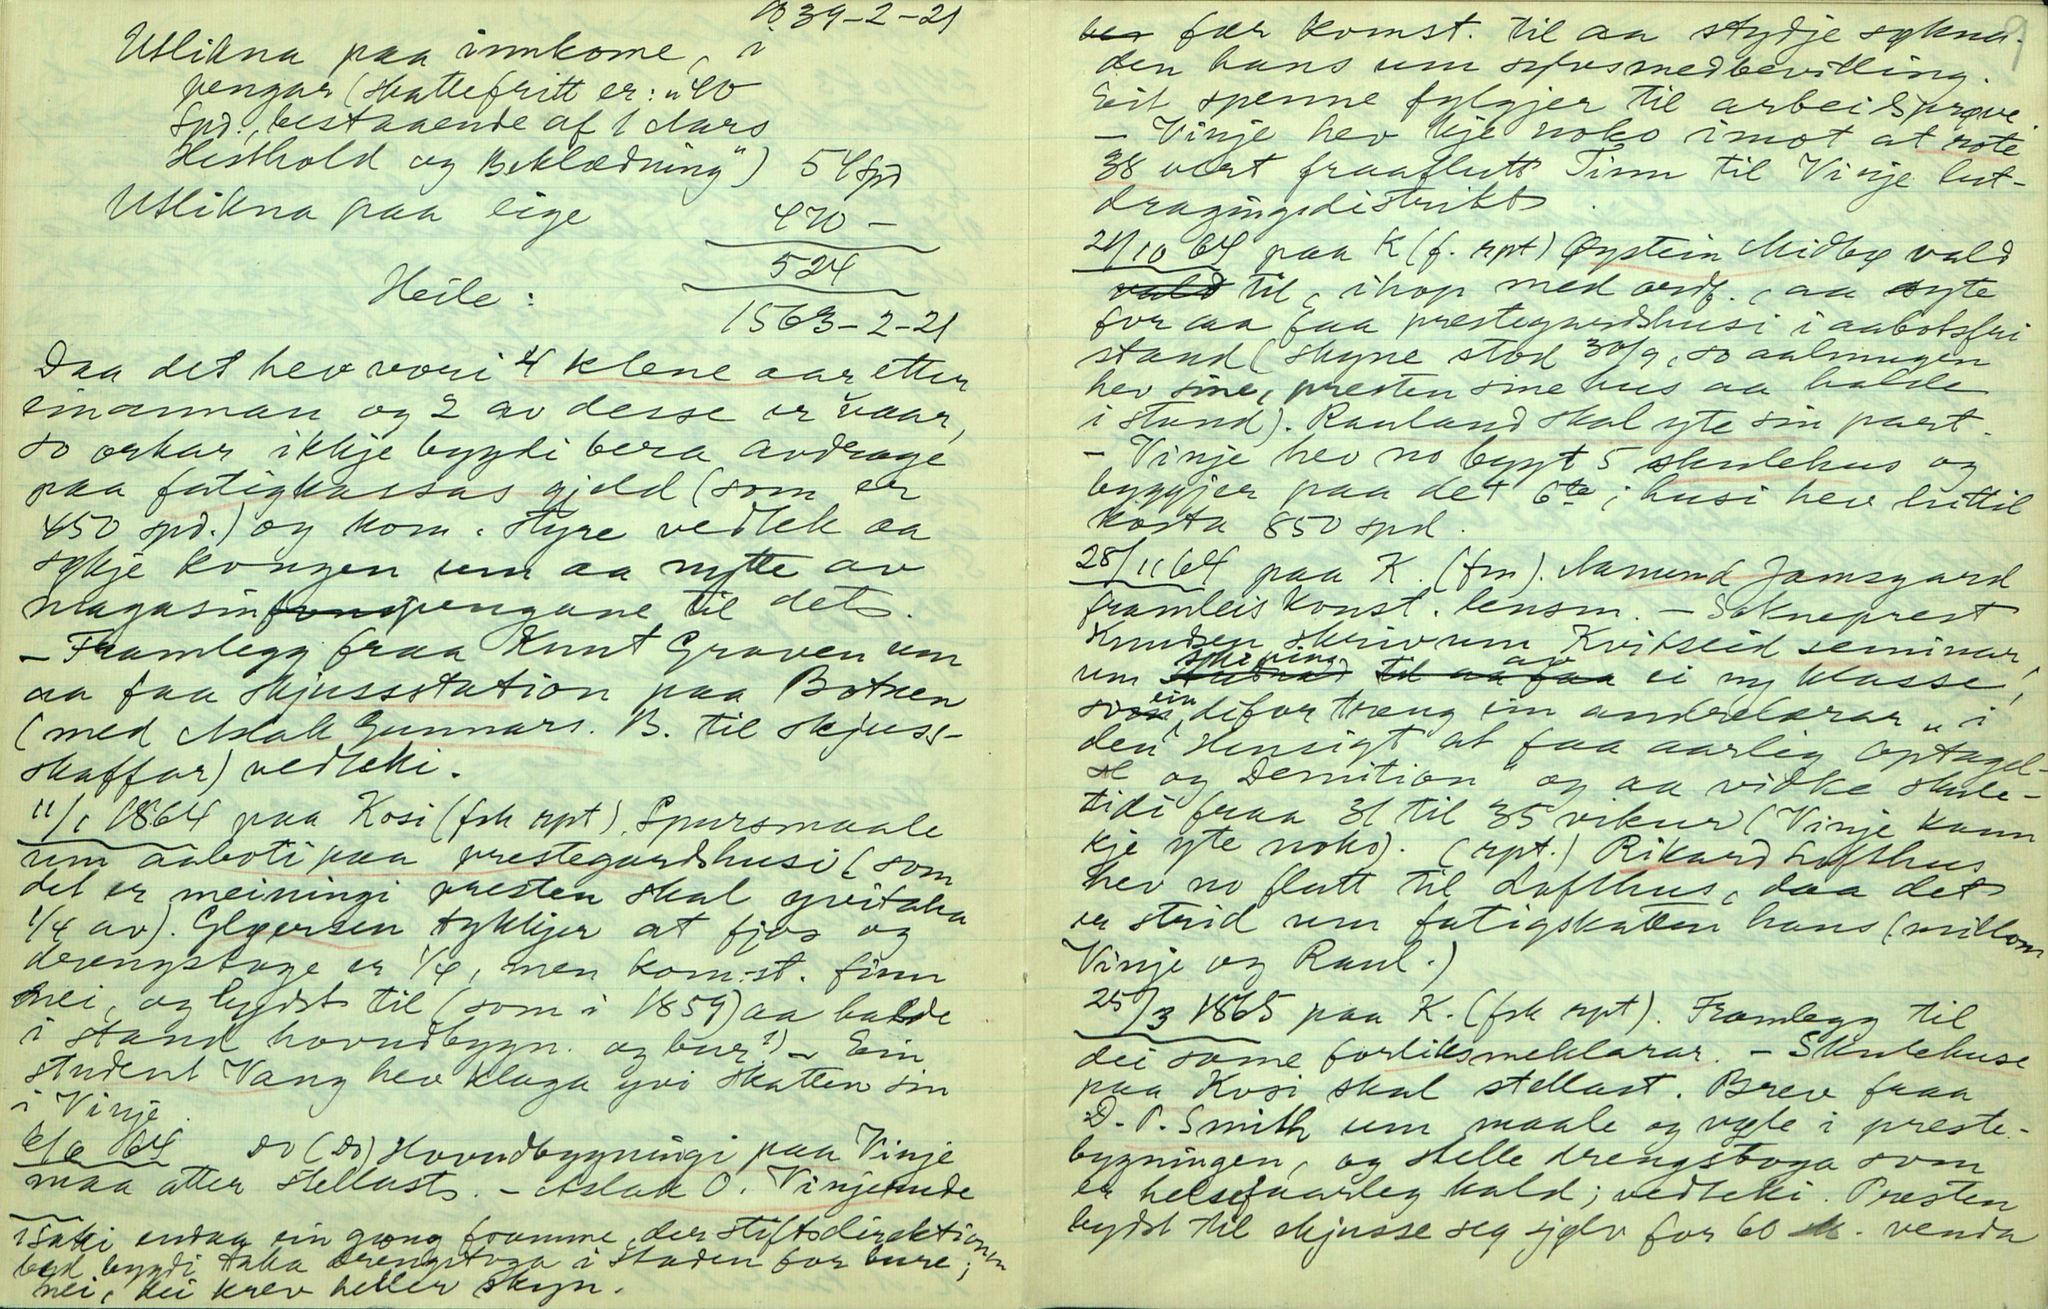 1039-2-21
Utlikna paa innkome, i
pengar (skattefritt er: "40
Spd., bestaaende af 1 Aars
Husthold og Beklædning") 54 spd
Utlikna paa eige 470 -
524
Heile: 1563-2-21
Daa det hev vori 4 klene aar etter
einannan og 2 av desse er uaar,
so orkar ikkje bygdi bera avdrage
paa fatigkassas gjeld (som er
450 spd.) og kom. styre vedtek aa
sykje kongen um aa nytte av
magasinpengane til det.
- Framlegg fraa Knut Groven um
aa faa skjussstation paa Botnen
(med Aslak Gunnars. B. til skjuss-
skaffar) vedteki.
11/1 1864 paa Kosi (fsk rpt). Spursmaale
um aaboti paa prestegardshusi (som
det er meiningi presten skal yvitaka
1/4 av). Glpersen tykkjer at fjos og
drengstoge er 1/4, men kom.st. finn
nei, og bydst til (som i 1859) aa halde
i stand hovudbygn. og bur 1) - Ein
student Vang hev klaga yvi skatten sin
i Vinje.
6/6 64 so (so) Hovudbygningi paa Vinje
maa atter stellast. - Aslak O. Vinje
1 Saki endaa ein gong framme, der stiftsdirektionen
bed bygdi taka drengstoga i staden for bure;
nei, dei krev heller skyn.
9
fær komst. til aa stydje sykna-
den hans um sylvsmedbevilling.
Eit spenne fylgjer til arbeidsprøve.
- Vinje hev kje noko imot at rote
38 vert fraaflutt Tinn til Vinje lut-
dragingsdistrikt.
21/10 64 paa K (f. rpt) Øystein Midbø vald
vald til, ihop med ordf., aa syte
for aa faa prestegardshusi i aabotsfri
stand (skyne stod 30/9, so aalmugen
hev sine, presten sine hus aa halde
i stand). Rauland skal yte sin part.
- Vinje hev no bygt 5 skulehus og
byggjer paa det 6te; husi hev hittil
kosta 850 spd.
28/11 64 paa K. (fm). Aamund Jamsgard
framleis konst. lensm. - Sokneprest
Knudsen skriv um Kvitseid seminar,
um skiping av ei ny klasse,
ein difor træng ein andrelærar "i
den Hensigt at faa aarlig Optagel-
se og Demition" og aa vidke skule-
tidi fraa 31 til 35 vikur (Vinje kann
kje yte noko). (rpt.) Rikard Lofthus
hev no flutt til Lofthus, daa det
er strid um fatigskatten hans (millom
Vinje og Raul.)
25/3 1865 paa K. (fsk rpt). Framlegg til
dei same forliksmeklarar. - Skulehuse
paa Kosi skal stellast. Brev fraa
D. P. Smith um maale og vøle i preste-
bygningen, og stelle drengstoga som
er helsefaarleg kald; vedteki. Presten
bydst til skjusse seg sjølv for 60 venda